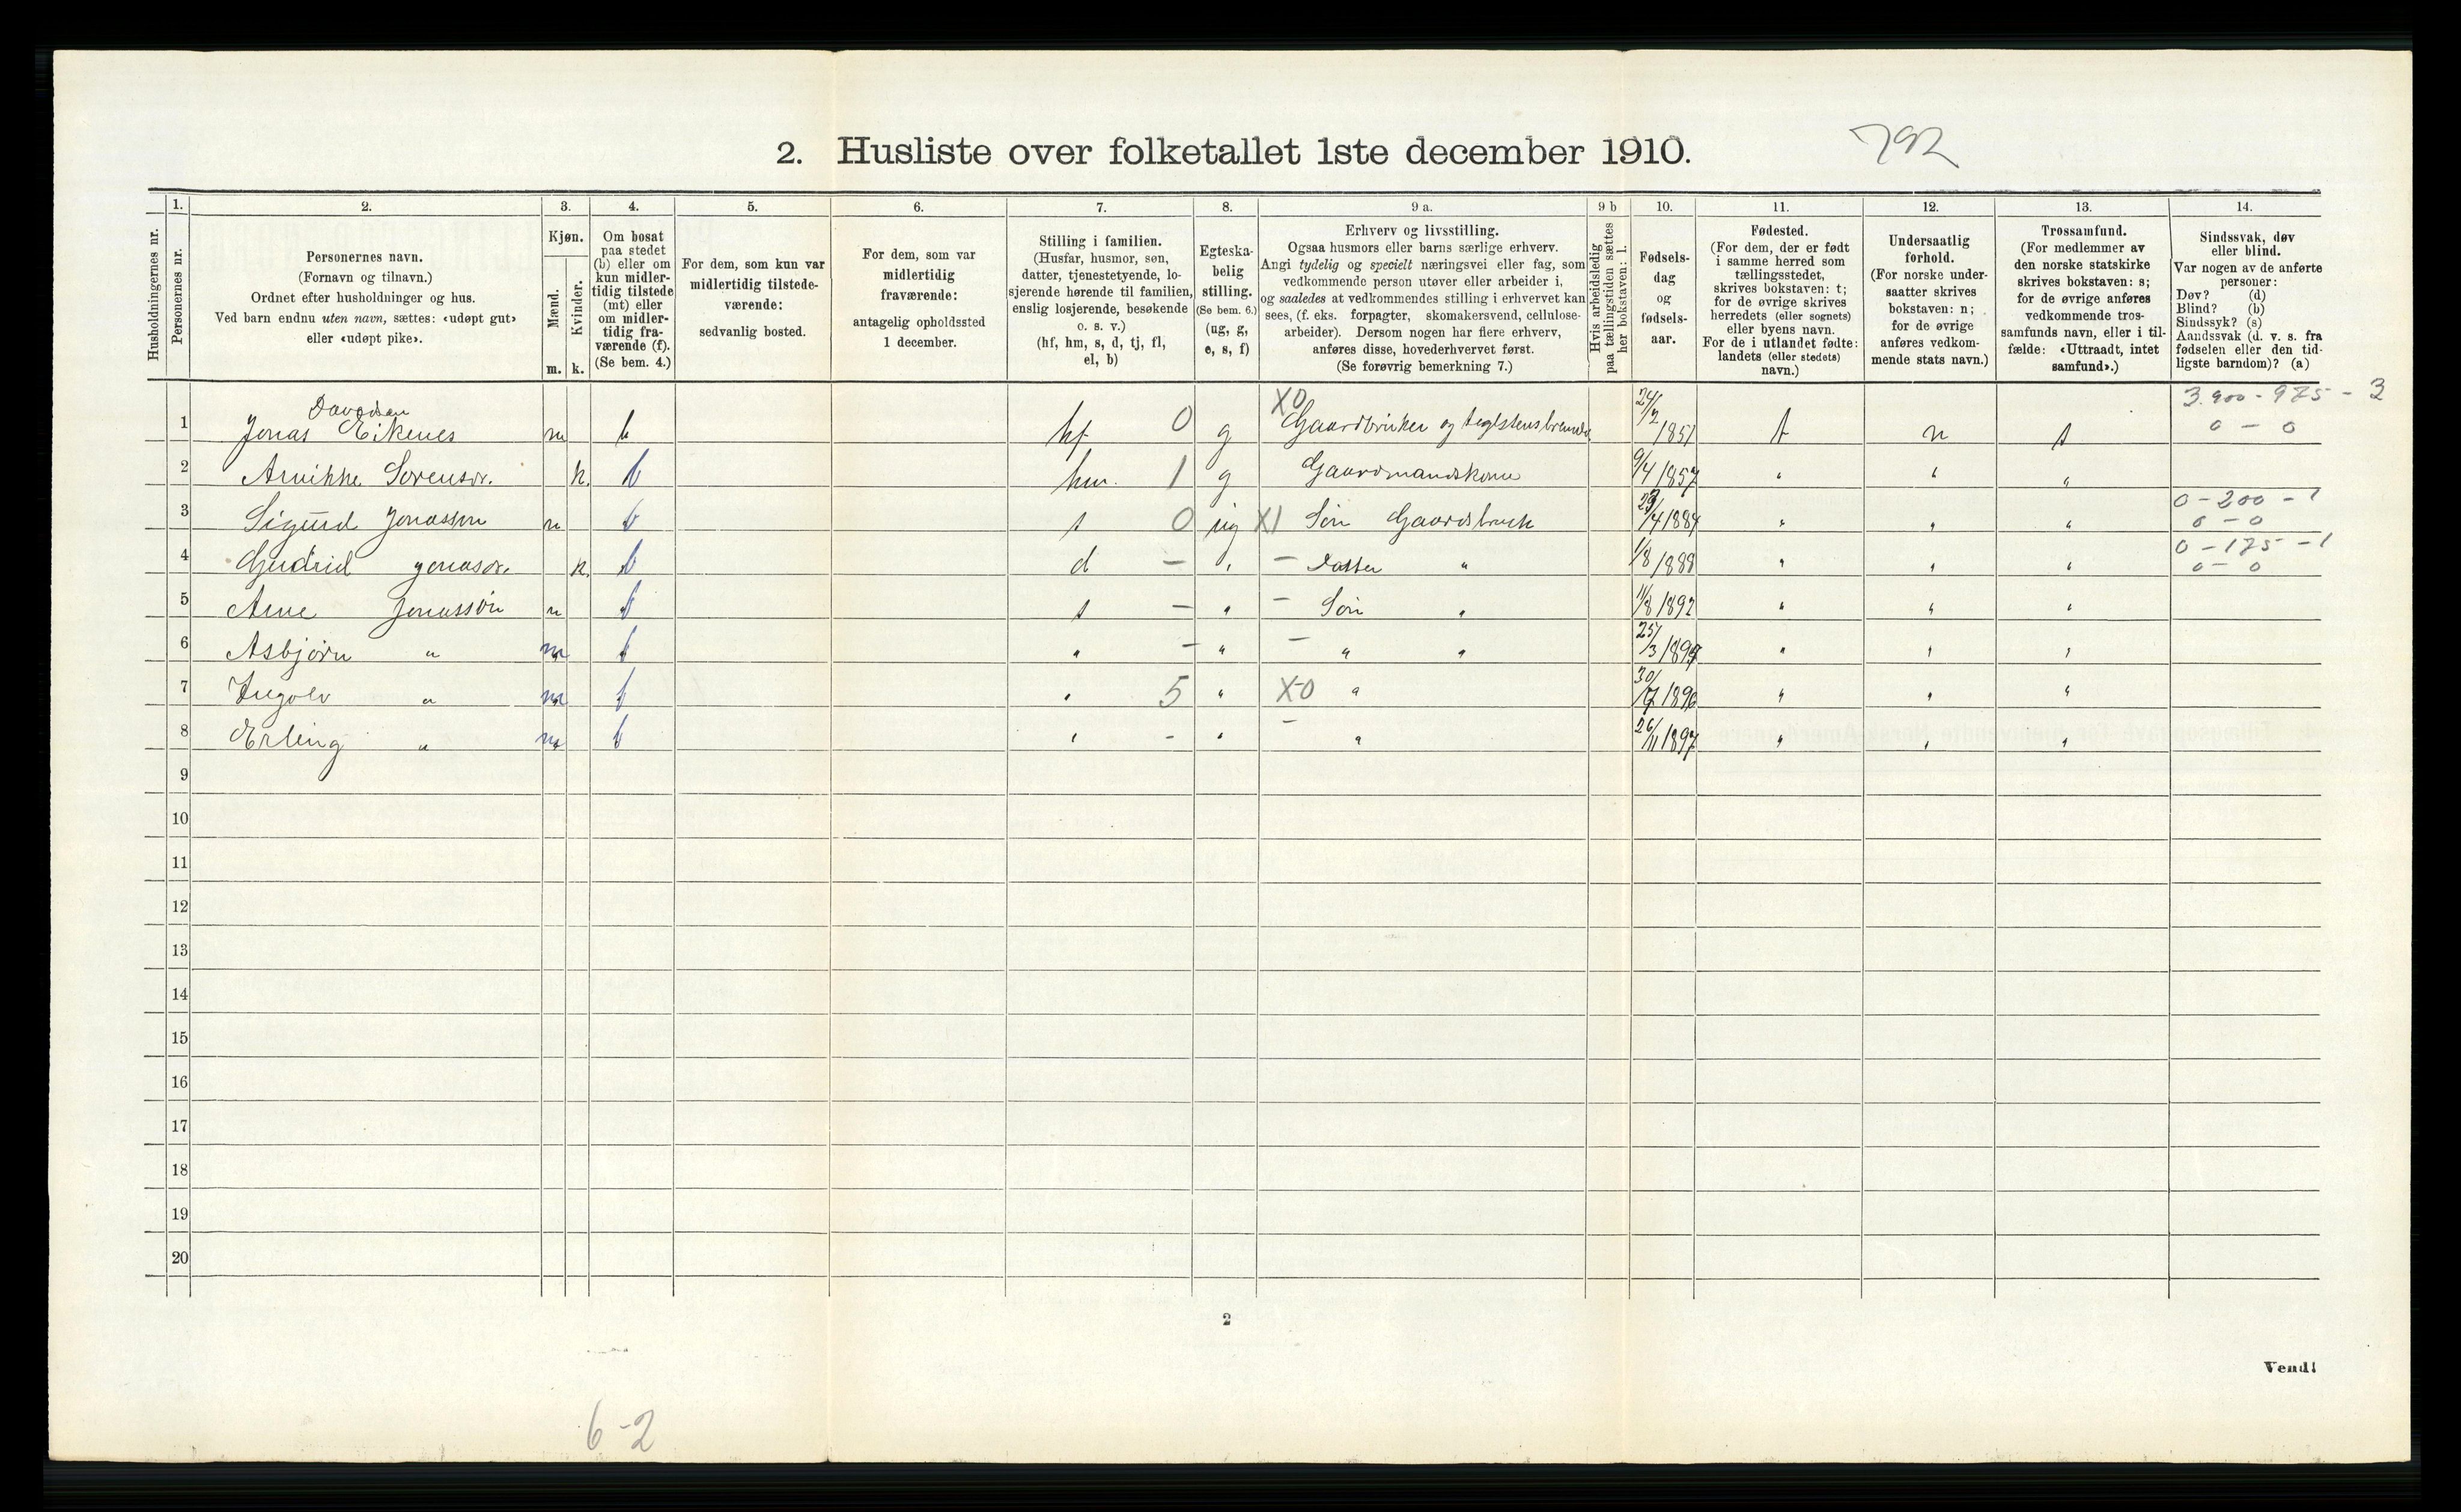 2. Husliste over folketallet 1ste december 1910.
792
Husholdningernes nr.
1.
Personernes nr.
2.
Personernes navn.
(Fornavn og tilnavn.)
Ordnet efter husholdninger og hus.
Ved barn endnu uten navn, sættes: «udøpt gut»
eller «udøpt pike».
3.
Kjøn.
Mænd.
Kvinder.
m. k.
4.
Om bosat
paa stedet
(b) eller om
kun midler-
tidig tilstede
(mt) eller
om midler-
tidig fra-
værende (f).
(Se bem. 4.)
5.
For dem, som kun var
midlertidig tilstede-
værende:
sedvanlig bosted.
6.
For dem, som var
midlertidig
fraværende:
antagelig opholdssted
1 december.
7.
Stilling i familien.
(Husfar, husmor, søn,
datter, tjenestetyende, lo-
sjerende hørende til familien,
enslig losjerende, besøkende
o. s. v.)
(hf, hm, s, d, tj, fl,
el, b)
8.
Egteska-
belig
stilling.
(Se bem. 6.)
(ug, g,
e, s, f)
9 a.
Erhverv og livsstilling.
Ogsaa husmors eller barns særlige erhverv.
Angi tydelig og specielt næringsvei eller fag, som
vedkommende person utøver eller arbeider i,
og saaledes at vedkommendes stilling i erhvervet kan
sees, (f. eks. forpagter, skomakersvend, cellulose-
arbeider). Dersom nogen har flere erhverv,
anføres disse, hovederhvervet først.
(Se forøvrig bemerkning 7.)
9 b
Hvis arbeidsledig
paa tællingstiden sættes
her bokstaven: l.
10.
Fødsels-
dag
og
fødsels-
aar.
11.
Fødested.
(For dem, der er født
i samme herred som
tællingsstedet,
skrives bokstaven: t;
for de øvrige skrives
herredets (eller sognets)
eller byens navn.
For de i utlandet fødte:
landets (eller stedets)
navn.)
12.
Undersaatlig
forhold.
(For norske under-
saatter skrives
bokstaven: n;
for de øvrige
anføres vedkom-
mende stats navn.)
13.
Trossamfund.
(For medlemmer av
den norske statskirke
skrives bokstaven: s;
for de øvrige anføres
vedkommende tros-
samfunds navn, eller i til-
fælde: «Uttraadt, intet
samfund».)
14.
Sindssvak, døv
eller blind.
Var nogen av de anførte
personer:
Døv? (d)
Blind? (b)
Sindssyk? (s)
Aandssvak (d. v. s. fra
fødselen eller den tid-
ligste barndom)? (a)
Davidsen X0 3.900 - 975 - 3
1 Jonas Eikenes m b hf 0 g Gaardbruker og teglstensbrænder 24/2 1851 t n s 0 - 0
2 Arnikke Sørensdr. k. b hm. 1 g Gaardmandskone 9/4 1857 " " "
0 - 200 - 1
3 Sigurd Jonassøn m b s 0 ug X1 Søn Gaardsbruk 29/4 1884 " " " 0 - 0
0 - 175 - 1
4 Gudrid Jonasdr. k. b d - " - Datter " 1/8 1889 " " " 0 - 0
5 Arne Jonassøn m b s - " - Søn " 11/8 1892 " " "
6 Asbjørn " m b " - " - " " 25/3 1894 " " "
7 Ingolv " m b " 5 " X0 " 30/7 1896 " " "
8 Erling " m b " - " - " 26/11 1897 " " "
9
10
11
12
13
14
15
16
17
18
19
20
2
Vend!
6-2